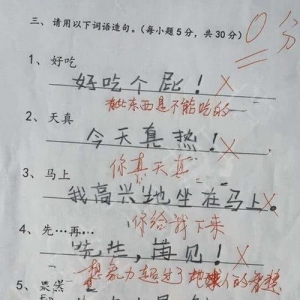 三、请用以下词语造句。(每小题5分，共30分)
0分
1、好吃
好吃个屁！ X
此东西是不能吃的
2、天真
今天真热！ X
你真天真
3、马上
我高兴地坐在马上。 X
你给我下来
4、先…再…
先生，再见！ X
想象力超过了地球人的智慧
5、果然